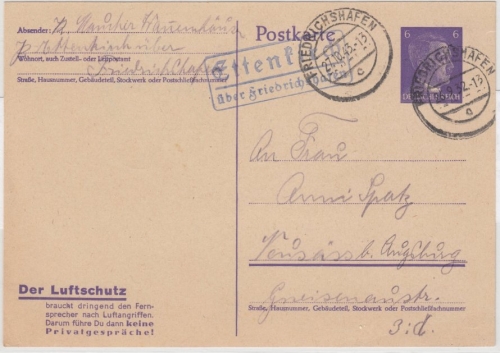 Absender: P. Maucher
Wohnort, auch Zustell- oder Leitpostamt
Friedrichshafen
Straße, Hausnummer, Gebäudeteil, Stockwerk oder Postschließfachnummer
über Friedrichshafen
Postkarte
FRIEDRICHSHAFEN
c
6 6
DEUTSCHES REICH
FRIEDRICHSHAFEN
c
An Frau
Anni Spatz
Neusäss b. Augsburg
Gneisenaustr.
Straße, Hausnummer, Gebäudeteil, Stockwerk oder Postschließfachnummer
Der Luftschutz
braucht dringend den Fern-
sprecher nach Luftangriffen.
Darum führe Du dann keine
Privatgespräche!